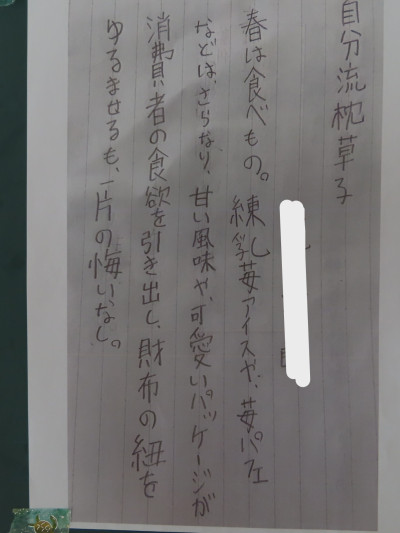 自分流枕草子
春は食べもの。練乳苺アイスや、苺パフェ
などは、さらなり、甘い風味や、可愛いパッケージが
消費者の食欲を引き出し、財布の紐を
ゆるませるも、一片の悔いなし。